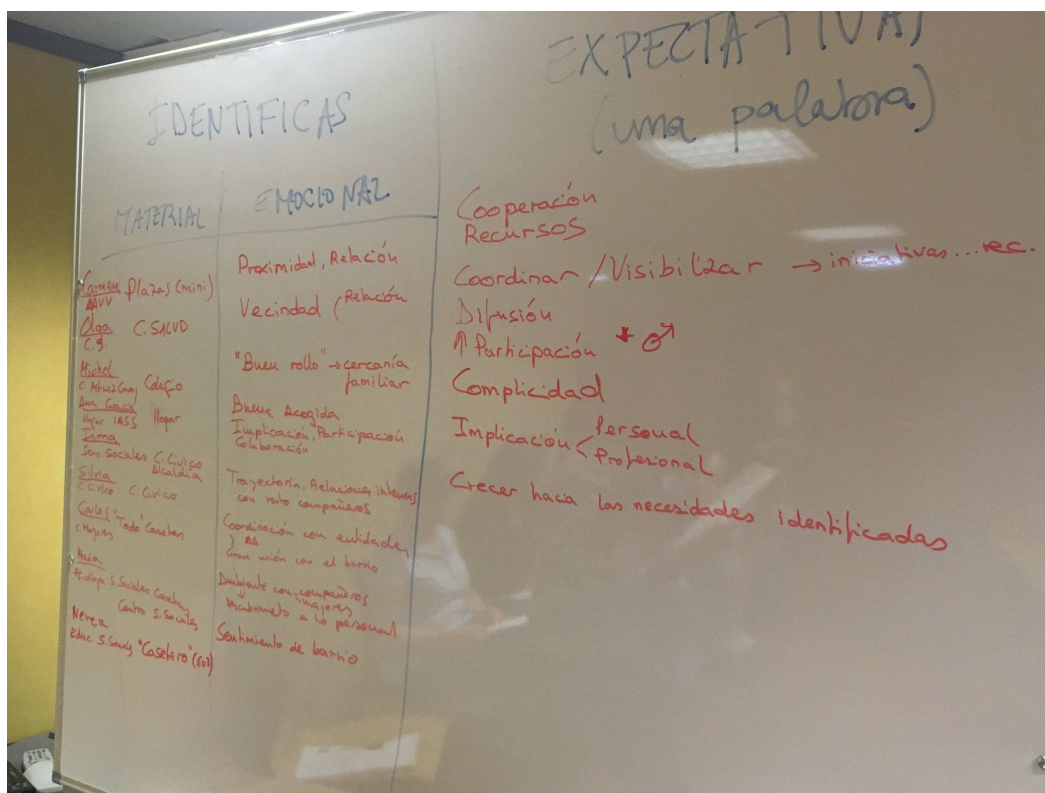 IDENTIFICAS
MATERIAL
Carmen Plazas (mini)
AAVV
Olga C. SALUD
C.S.
Michel
Colegio
Hogar IASS Hogar
Inma
Serv. Sociales C. Cívico
Alcaldía
Silvia
C. Cívico C. Cívico
Carlos "Todo" Casetas
C. Mayores
Naia
S. Sociales Casetas
Centro S. Sociales
Nerea
Educ S. Socials "Casetero" (
EMOCIONAL
Proximidad, Relación
Vecindad (Relación
"Buen rollo" → cercanía
familiar
Buena Acogida
Implicación, Participación
Colaboración
Trayectoria, Relaciones intensas
con resto compañeros
Coordinación con entidades
Gran unión con el barrio
Ambiente con compañeros
mejores
↓
a lo personal
Sentimiento de barrio
EXPECTATIVAS
(una palabra)
Cooperación
Recursos
Coordinar / Visibilizar → iniciativas... rec.
Difusión
↑ Participación + ♂
Complicidad
Implicación < Personal
Profesional
Crecer hacia las necesidades identificadas